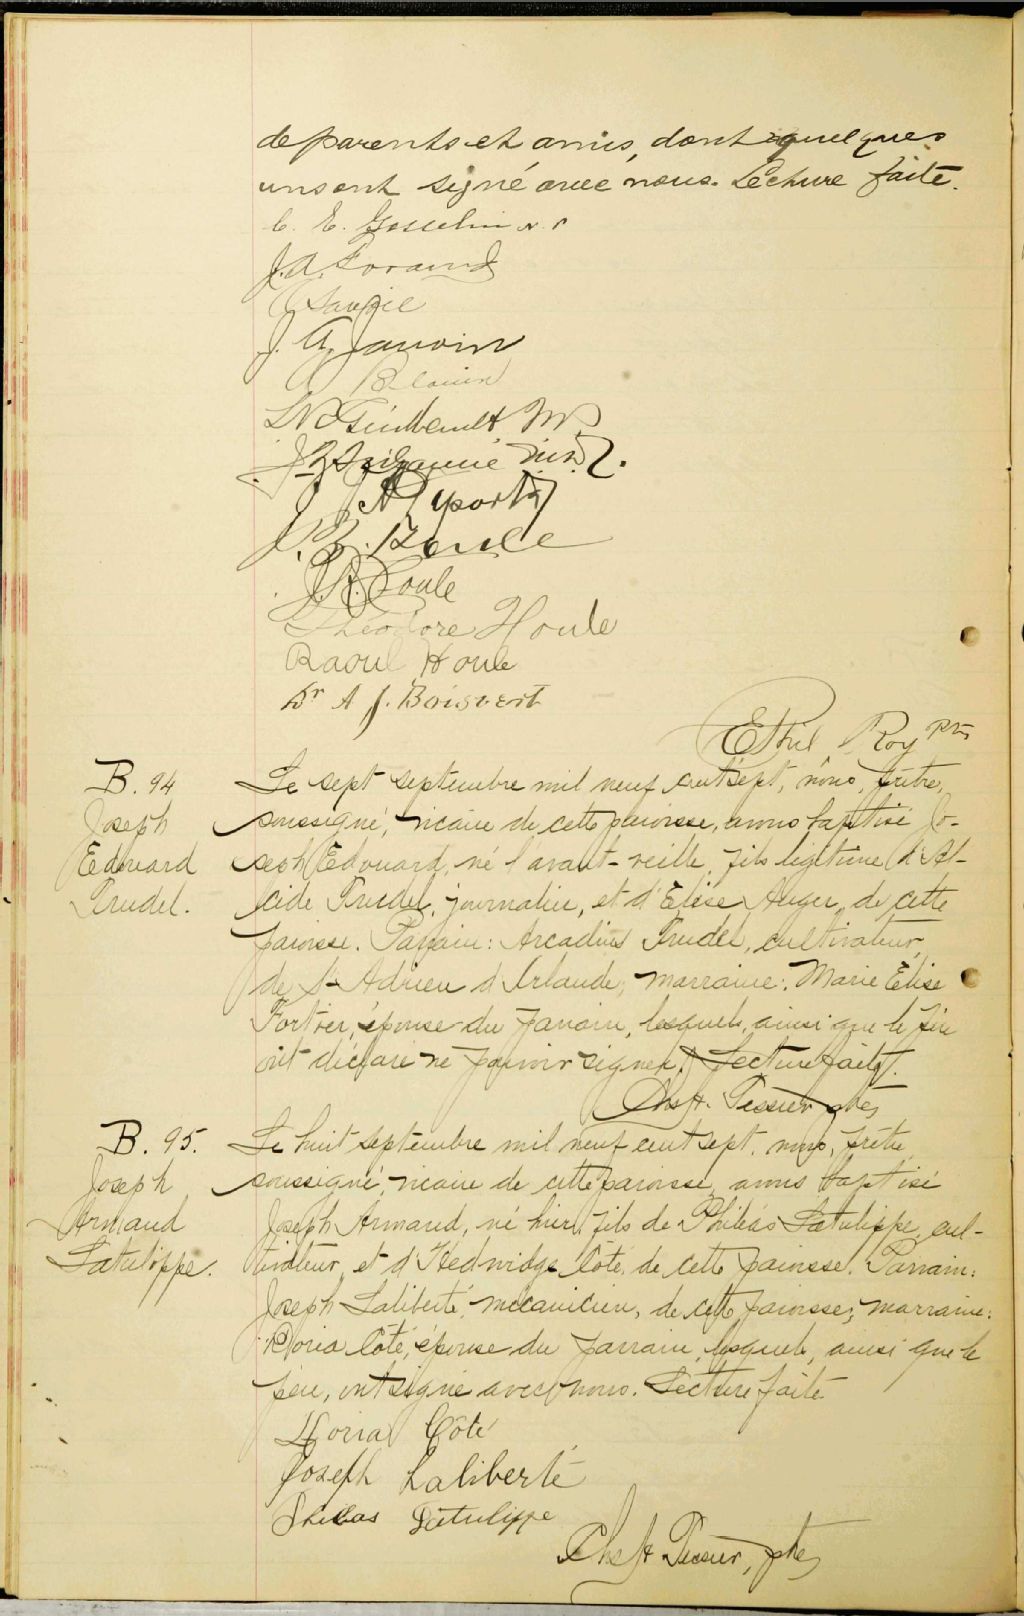 de parents et amis, dont quelques
uns ont signé avec nous. Lecture faite.
C. E. Gosselin
J. A.
Savoie
J. A. Janvin
Blouin
J. B.
Houle
Théodore Houle
Raoul Houle
Dr A J. Boisvert
Ethil Roy ptre
B. 94
Joseph
Edouard
Trudel.
Le sept septembre mil neuf cent sept, nous, prêtre,
soussigné, vicaire de cette paroisse, avons baptisé Jo-
seph Edouard, né l'avant-veille, fils légitime d'Al-
cide Trudel, journalier, et d'Elise Auger, de cette
paroisse. Parrain: Arcadius Trudel, cultivateur,
de St Adrien d'Irlande; marraine: Marie Elise
Fortier, épouse du parrain, lesquels, ainsi que le père
ont déclaré ne pouvoir signer. Lecture faite.
Chs H. Tessier ptre
B. 95.
Joseph
Armand
Latulippe.
Le huit septembre mil neuf cent sept, nous, prêtre
soussigné, vicaire de cette paroisse, avons baptisé
Joseph Armand, né hier, fils de Philéas Latulippe, cul-
tivateur, et d'Hedwidge Côté, de cette paroisse. Parrain:
Joseph Laliberté, mécanicien, de cette paroisse; marraine:
Côté, épouse du parrain, lesquels, ainsi que le
père, ont signé avec nous. Lecture faite
Côté
Joseph Laliberté
Phileas Latulippe
Chs H Tessier, ptre